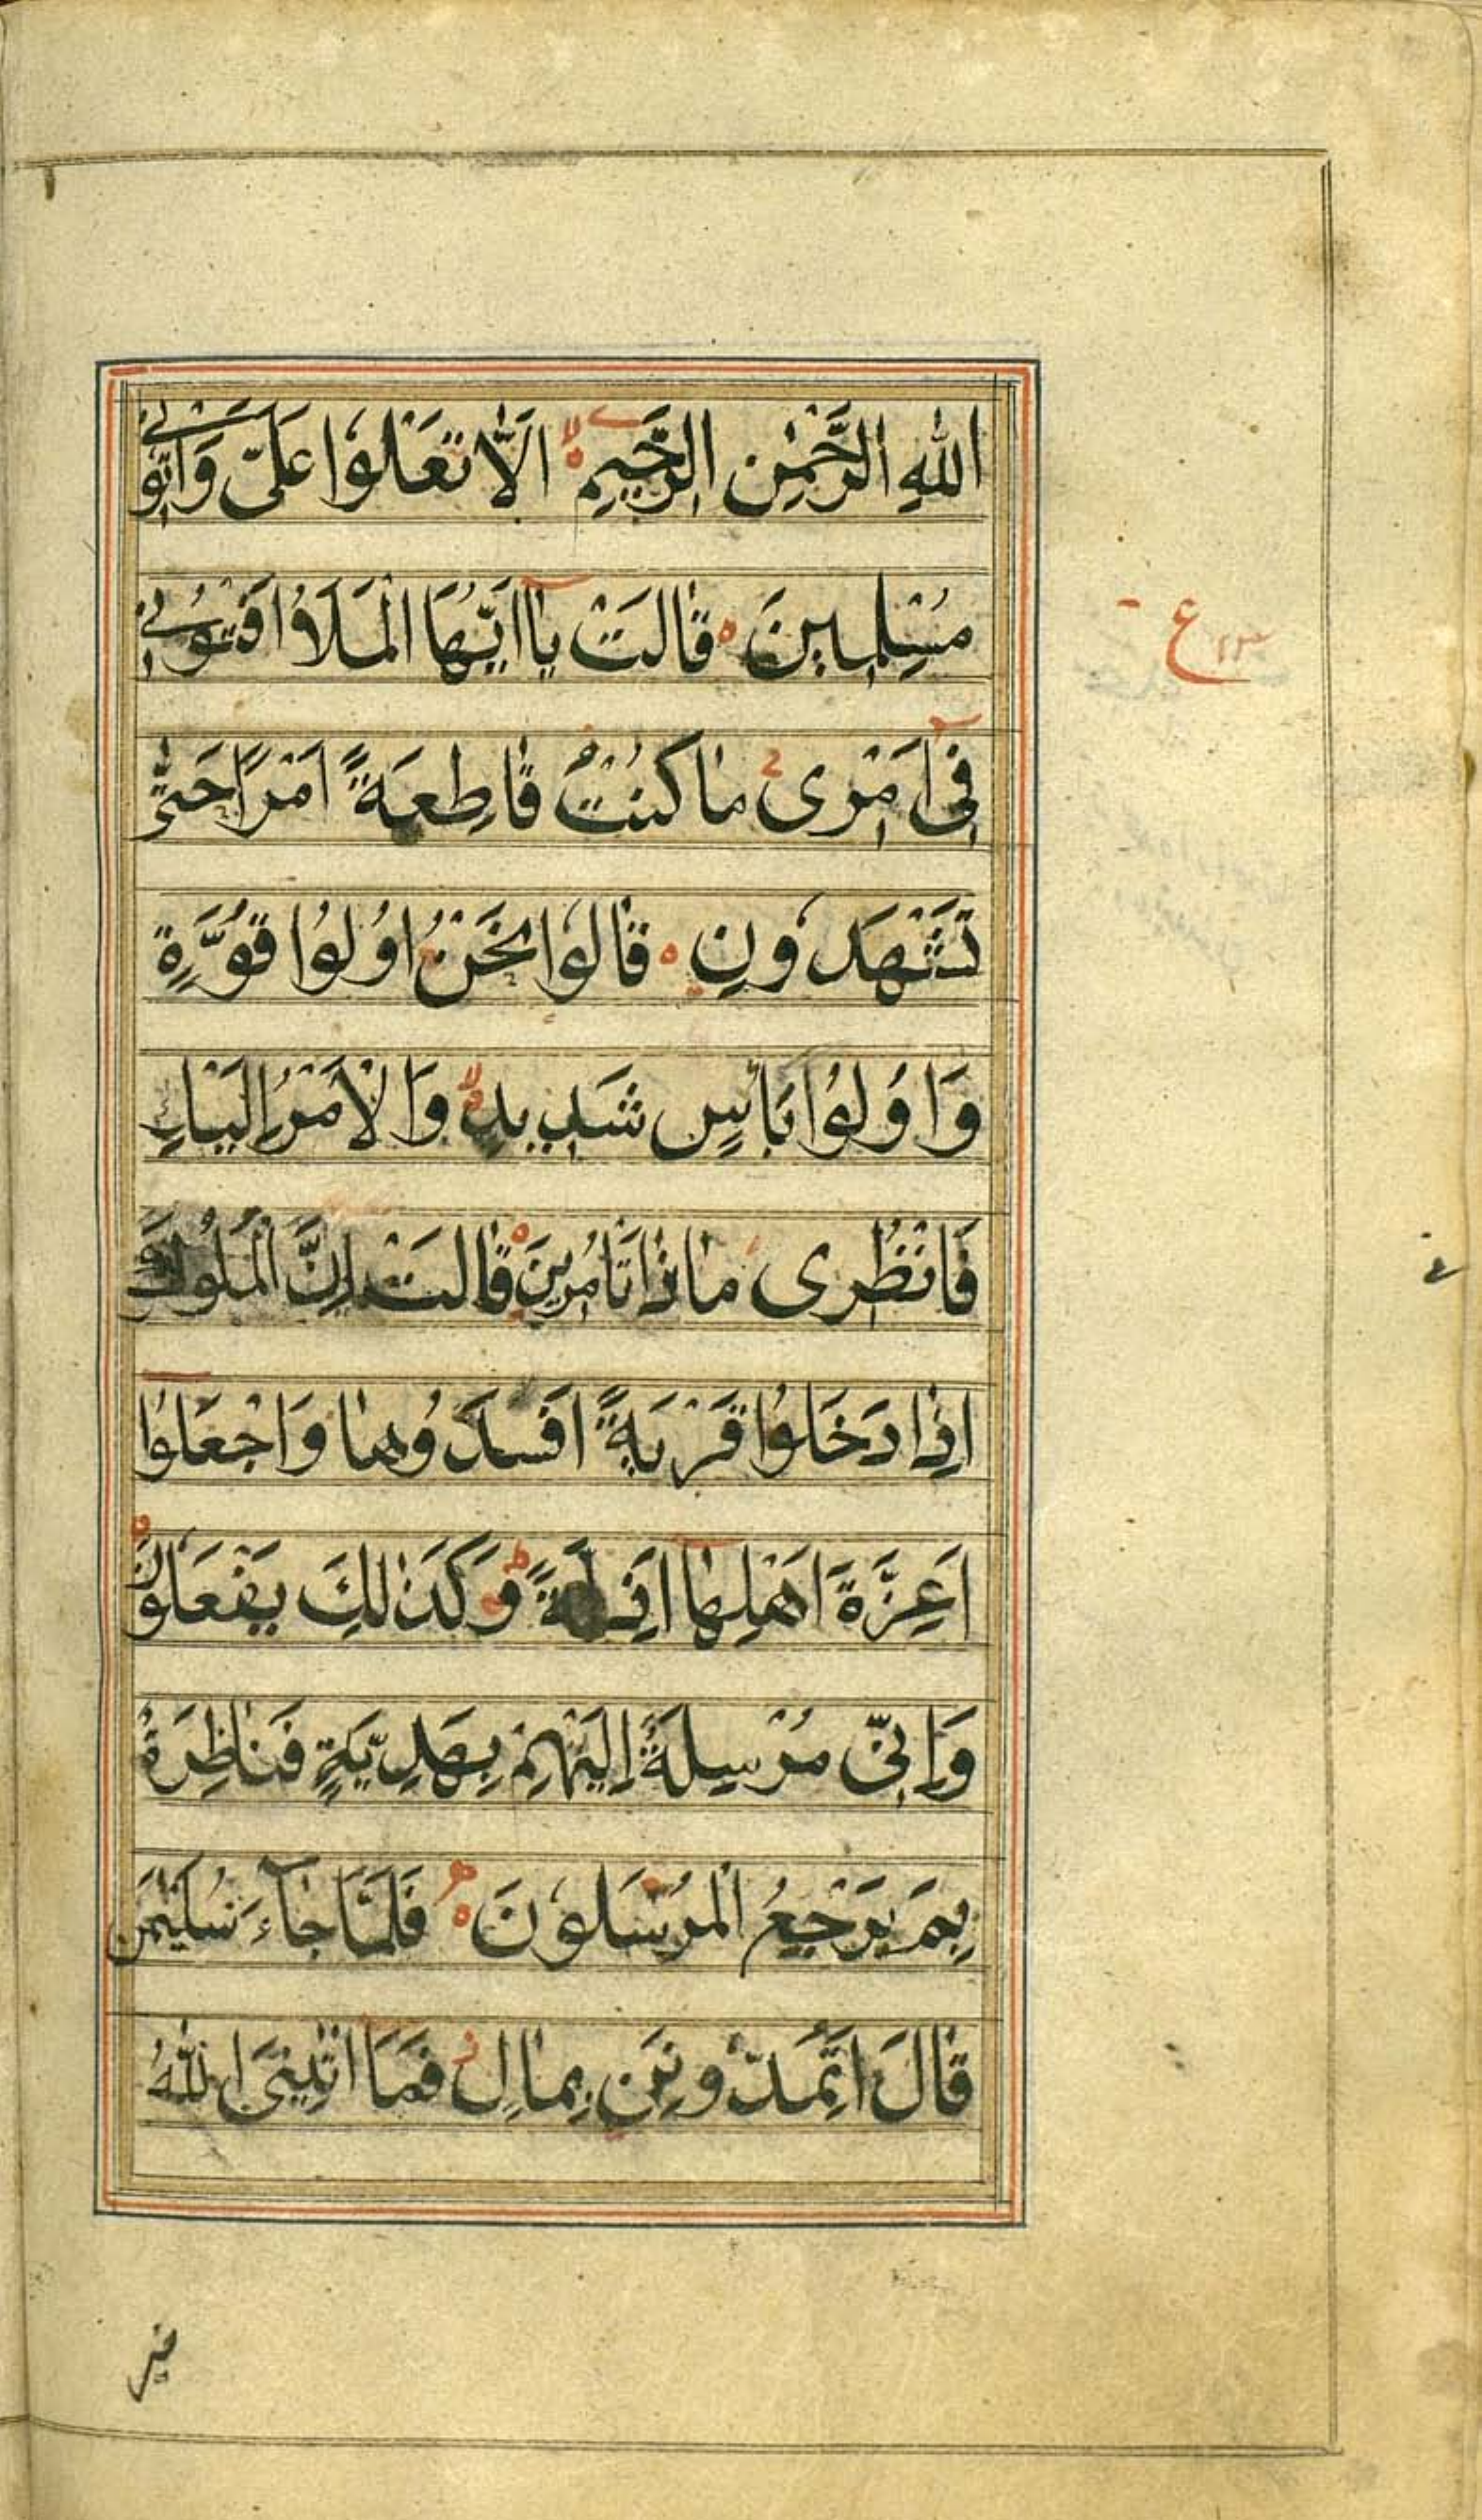 اللهِ الرَّحْمٰنِ الرَّحِيمِ اَلَّا تَعْلُوا عَلَيَّ وَاْتُونِي
مُسْلِمِينَ قَالَتْ يَا اَيُّهَا الْمَلَاُ اَفْتُونِي
فِي اَمْرِى مَا كُنْتُ قَاطِعَةً اَمْرًا حَتّٰى
تَشْهَدُونِ قَالُوا نَحْنُ اُولُوا قُوَّةٍ
وَاُولُوا بَاْسٍ شَدِيدٍ وَالْاَمْرُ اِلَيْكِ
فَانْظُرِى مَاذَا تَاْمُرِينَ قَالَتْ اِنَّ الْمُلُوكَ
اِذَا دَخَلُوا قَرْيَةً اَفْسَدُوهَا وَاجْعَلُوا
اَعِزَّةَ اَهْلِهَا اَذِلَّةً وَكَذٰلِكَ يَفْعَلُونَ
وَاِنِّي مُرْسِلَةٌ اِلَيْهِمْ بِهَدِيَّةٍ فَنَاظِرَةٌ
بِمَ يَرْجِعُ الْمُرْسَلُونَ فَلَمَّا جَاءَ سُلَيْمٰنَ
قَالَ اَتُمِدُّونَنِ بِمَالٍ فَمَا اٰتٰينِيَ اللهُ
خير